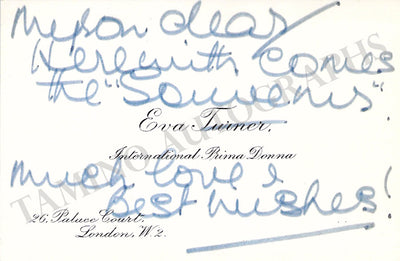 Myron dear,
Herewith comes
the "Souvenirs".
Eva Turner,
International Prima Donna
Much love &
Best wishes!
26, Palace Court,
London, W.2.
TAMINO AUTOGRAPHS